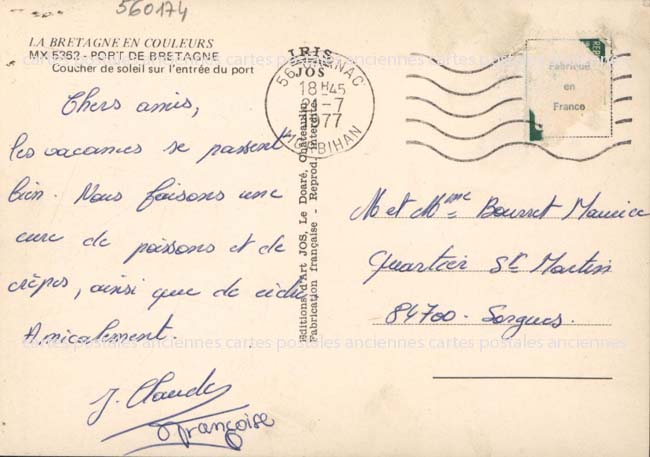 560174
LA BRETAGNE EN COULEURS
MX 5362 - PORT DE BRETAGNE
Coucher de soleil sur l'entrée du port
Chers amis,
les vacances se passent
bien. Nous faisons une
cure de poissons et de
crêpes, ainsi que de cidre
Amicalement.
J. Claude
Françoise
IRIS
JOS
56 CARNAC
18H45
-7
1977
MORBIHAN
Editions d'Art JOS, Le Doaré, Châteaulin
Fabrication française - Reprod. interdite
Fabriqué
en
France
M et Mme Bourret Maurice
Quartier St Martin
84700 - Sorgues.
cartes postales anciennes cartes postales anciennes cartes postales anciennes
cartes postales anciennes cartes postales anciennes cartes postales anciennes